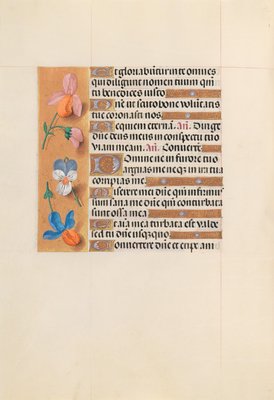 Et gloriabuntur in te omnes
qui diligunt nomen tuum qm̄ tu
tu benedices iusto
Dn̄e ut scuto bone voluntatis
tue coronasti nos.
Requiem eternā. Añ. Dirige
dn̄e deus meus in conspectu tuo
viam meam. Añ. Convertere.
Domine ne in furore tuo
arguas me neq̄ in ira tua
corripias me.
Miserere mei dn̄e qm̄ infirmꝰ
sum sana me dn̄e qm̄ conturbata
sunt ossa mea
Et aīa mea turbata est valde
sed tu dn̄e usq̄quo
Convertere dn̄e et eripe aīam